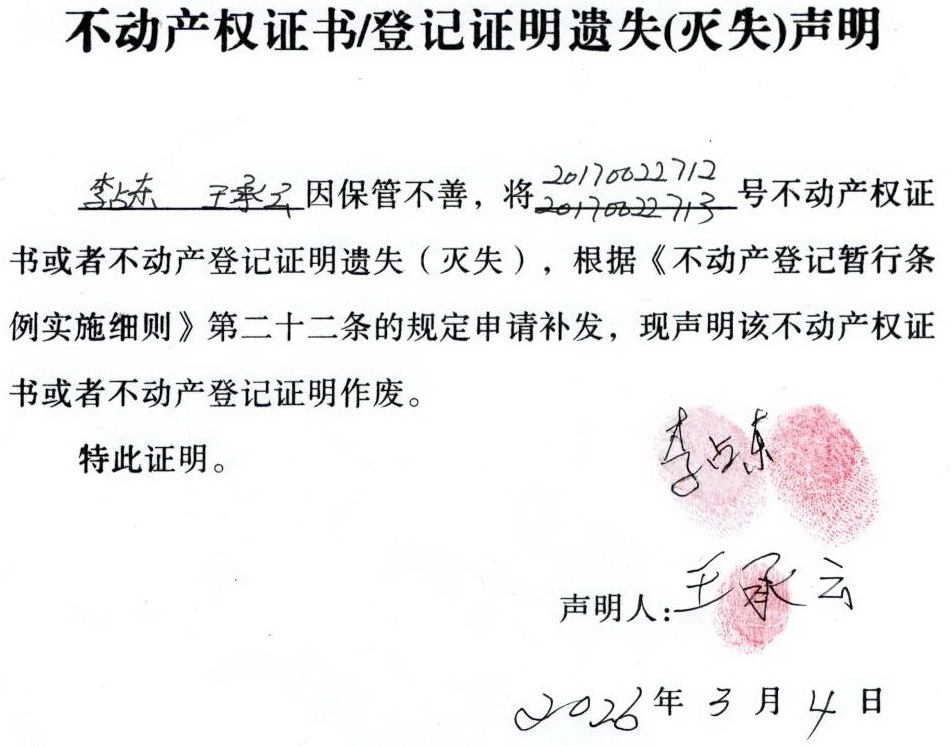 不动产权证书/登记证明遗失(灭失)声明
李占东 王承云因保管不善，将20170022712 20170022713号不动产权证
书或者不动产登记证明遗失（灭失），根据《不动产登记暂行条
例实施细则》第二十二条的规定申请补发，现声明该不动产权证
书或者不动产登记证明作废。
特此证明。
李占东
声明人：王承云
2026年3月4日